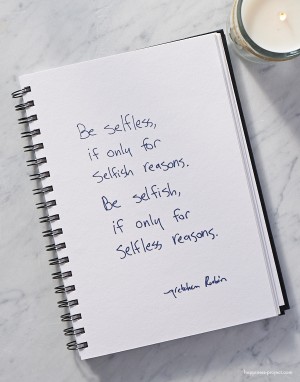 Be selfless,
if only for
selfish reasons.
Be selfish,
if only for
selfless reasons.
—gretchen Rubin